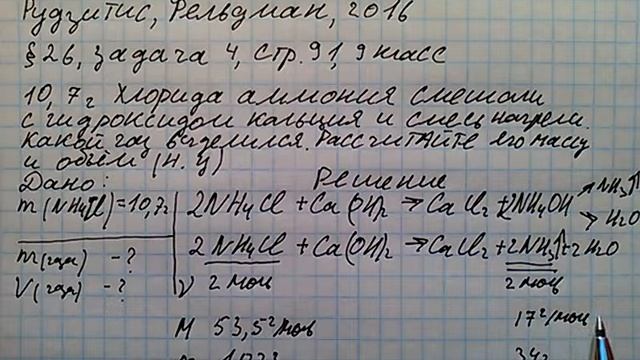 Рудзитис, Фельдман, 2016
§ 26, задача 4, стр. 91, 9 класс
10,7г Хлорида аммония смешали
с гидроксидом кальция и смесь нагрели.
Какой газ выделился. Рассчитайте его массу
и объём (н.у)
Дано: Решение
m(NH4Cl)=10,7г 2NH4Cl + Ca(OH)2 → CaCl2 + 2NH4OH → NH3↑
→ H2O
m(газа) - ? 2NH4Cl + Ca(OH)2 → CaCl2 + 2NH3↑ + 2H2O
V(газа) - ? ν 2 моль 2 моль
M 53,5 г/моль 17 г/моль
34г